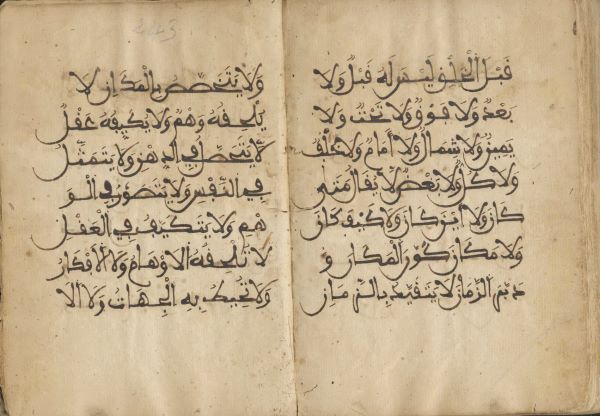 قبل الخلق ليس له قبل ولا
بعد ولا فوق ولا تحت ولا
يمين ولا شمال ولا أمام ولا خلف
ولا كل ولا بعض لا يقال متى
كان ولا أين كان ولا كيف كان
ولا مكان كون المكان و
دبر الزمان لا يتقيد بالزمان
ولا يتخصص بالمكان لا
يلحقه وهم ولا يكيفه عقل
لا يتخصص في الذهن ولا يتمثل
في النفس ولا يتصور في الو
هم ولا يتكيف في العقل
لا تلحقه الاوهام ولا الأفكار
ولا تحيط به الجهات ولا الا